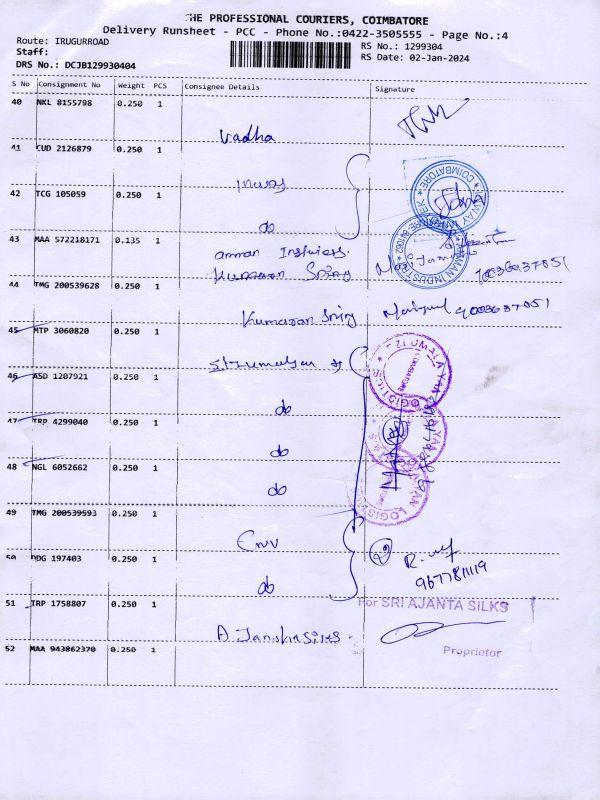 THE PROFESSIONAL COURIERS, COIMBATORE
Delivery Runsheet - PCC - Phone No.:0422-3505555 - Page No.:4
Route: IRUGURROAD
RS No.: 1299304
Staff:
RS Date: 02-Jan-2024
DRS No.: DCJB129930404
S No Consignment No Weight PCS Consignee Details Signature
40 NKL 8155798 0.250 1
Vadha
41 CUD 2126879 0.250 1
42 TCG 105059 0.250 1
do
COIMBATORE
43 MAA 572218171 0.135 1
amman
Kumaran Spring
44 TMG 200539628 0.250 1
Kumaran Spring 9003637051
45 MTP 3060820 0.250 1
46 ASD 1207921 0.250 1
do
47 TRP 4299040 0.250 1
do
48 NGL 6052662 0.250 1
do
49 TMG 200539593 0.250 1
50 DDG 197403 0.250 1
do
9677811119
51 TRP 1758807 0.250 1
For SRI AJANTA SILKS
52 MAA 943862370 0.250 1
Proprietor